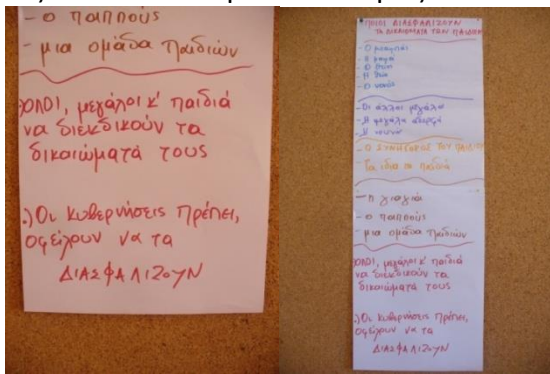 - ο παππούς
- μια ομάδα παιδιών
ΌΛΟΙ, μεγάλοι κ' παιδιά
να διεκδικούν τα
δικαιώματά τους
.) Οι κυβερνήσεις πρέπει,
οφείλουν να τα
ΔΙΑΣΦΑΛΙΖΟΥΝ
ΠΟΙΟΙ ΔΙΑΣΦΑΛΙΖΟΥΝ
ΤΑ ΔΙΚΑΙΩΜΑΤΑ ΤΩΝ ΠΑΙΔΙΩΝ
- Ο μπαμπάς
- Η μαμά
- Ο θείος
- Η θεία
- Ο νονός
- Οι άλλοι μεγάλοι
- Η μεγάλη αδερφή
- Η νονά
- Ο ΣΥΝΗΓΟΡΟΣ ΤΟΥ ΠΑΙΔΙΟΥ
- Τα ίδια τα παιδιά
- η γιαγιά
- ο παππούς
- μια ομάδα παιδιών
ΌΛΟΙ, μεγάλοι κ' παιδιά
να διεκδικούν τα
δικαιώματά τους
.) Οι κυβερνήσεις πρέπει,
οφείλουν να τα
ΔΙΑΣΦΑΛΙΖΟΥΝ